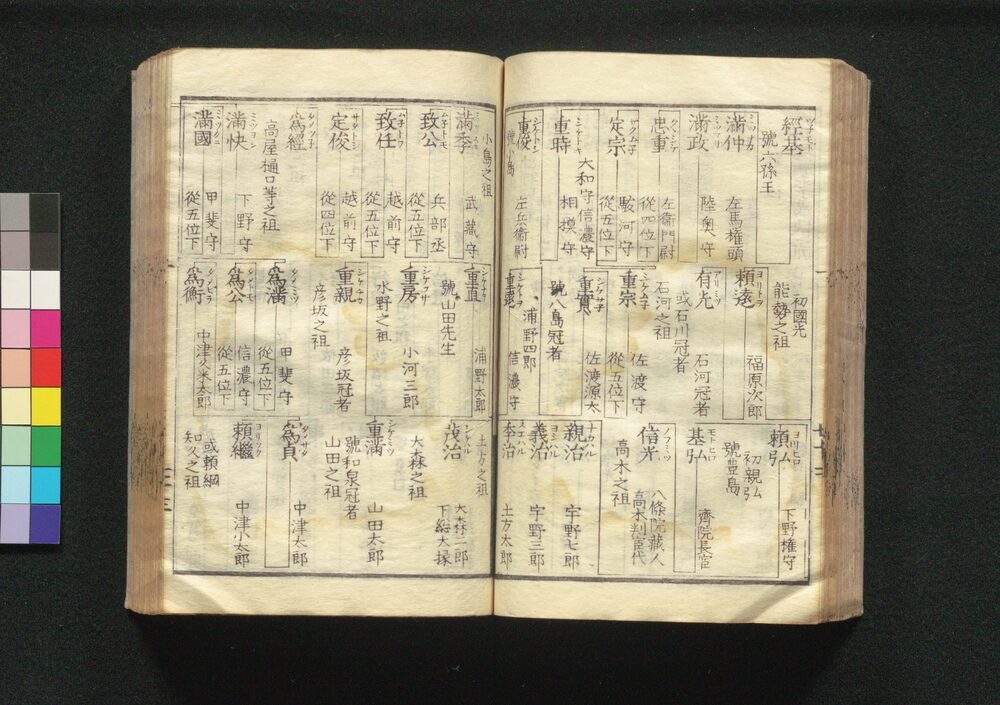 經基
號六孫王
滿仲
左馬權頭
滿政
陸奥守
忠重
左衛門尉
從四位下
定宗
駿河守
從五位下
大和守信濃守
重時
相摸守
重俊
左兵衛尉
初國光
能勢之祖
頼遠
福原次郎
有光
石河冠者
或石川冠者
石河之祖
重宗
佐渡守
從五位下
重實
佐渡源太
號八島冠者
浦野四郎
重遠
信濃守
頼弘
下野權守
初親弘
號豊島
基弘
齊院長官
信光
八條院藏人
高木判官代
高木之祖
親治
宇野七郎
義治
宇野三郎
季治
土方太郎
小島之祖
滿季
武藏守
致公
兵部丞
從五位下
致任
越前守
從五位下
定俊
越前守
從四位下
爲經
高屋樋口等之祖
滿快
下野守
滿國
甲斐守
從五位下
重直
浦野太郎
號山田先生
重房
小河三郎
水野之祖
重親
彦坂冠者
彦坂之祖
爲滿
甲斐守
從五位下
爲公
信濃守
從五位下
爲衡
中津久米太郎
土方之祖
茂治
大森二郎
下総大掾
大森之祖
重滿
山田太郎
號和泉冠者
山田之祖
爲貞
中津太郎
頼繼
中津小太郎
或頼綱
知久之祖